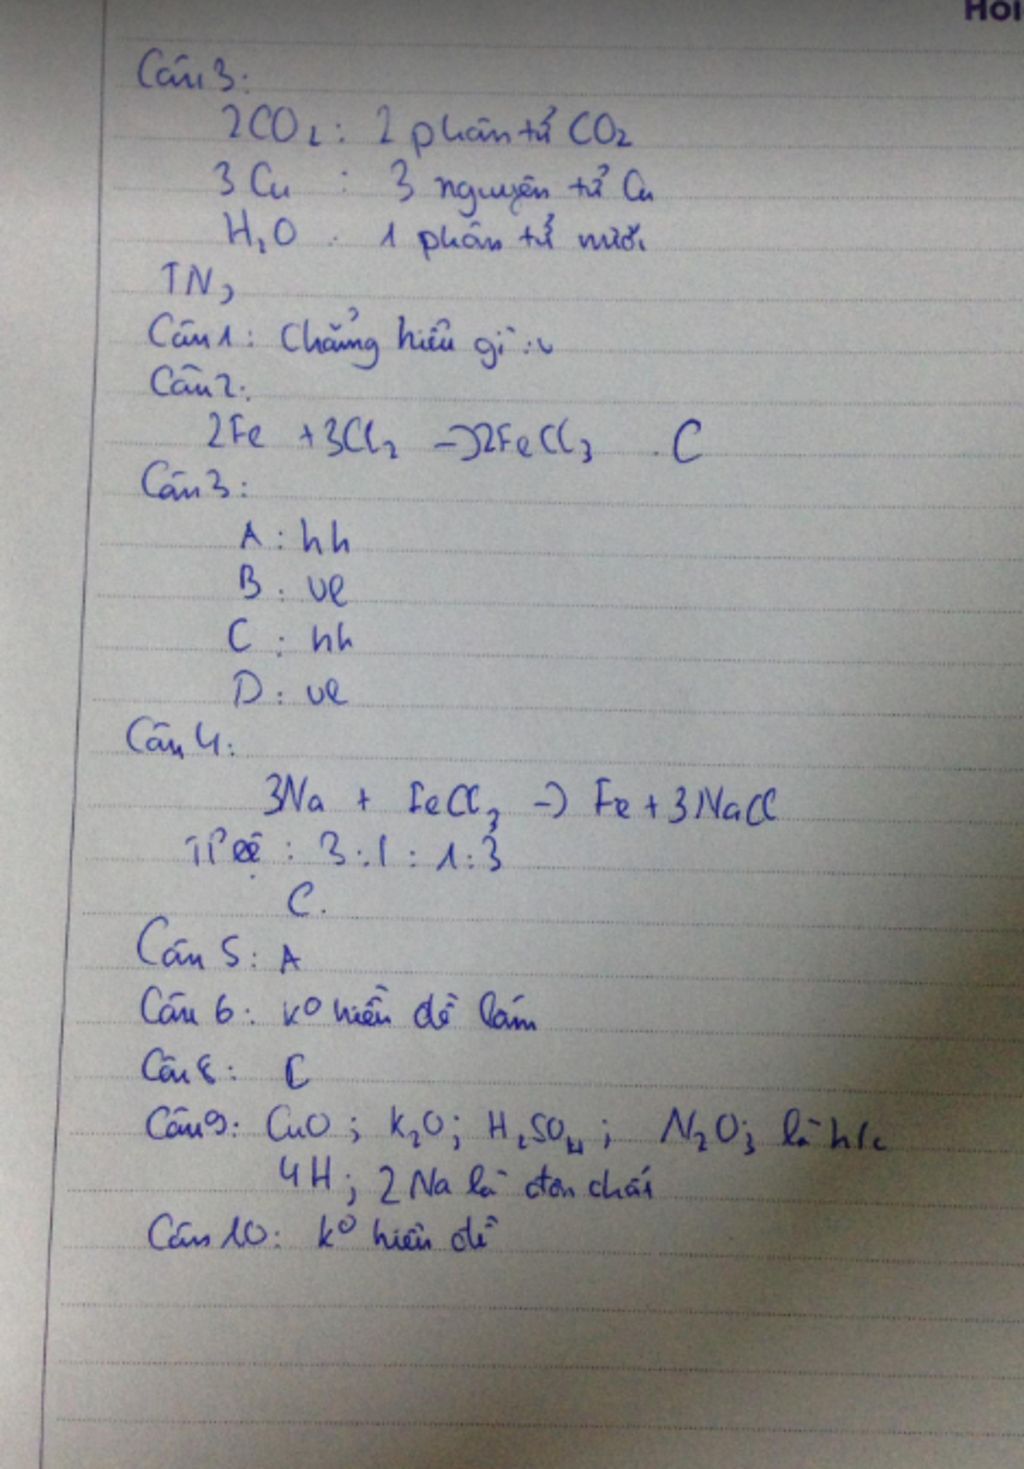 Hỏi
Câu 3:
2CO2: 2 phân tử CO2
3Cu : 3 nguyên tử Cu
H2O : 1 phân tử nước
TN,
Câu 1: Chẳng hiểu gì :v
Câu 2:
2Fe + 3Cl2 → 2FeCl3 . C
Câu 3:
A : hh
B : vl
C : hh
D : vl
Câu 4:
3Na + FeCl3 → Fe + 3NaCl
: 3 : 1 : 1 : 3
C.
Câu 5: A
Câu 6: ko hiểu đề lắm
Câu 8: C
Câu 9: CuO ; K2O ; H2SO4 ; N2O3 là h/c
4H ; 2Na là đơn chất
Câu 10: ko hiểu đề